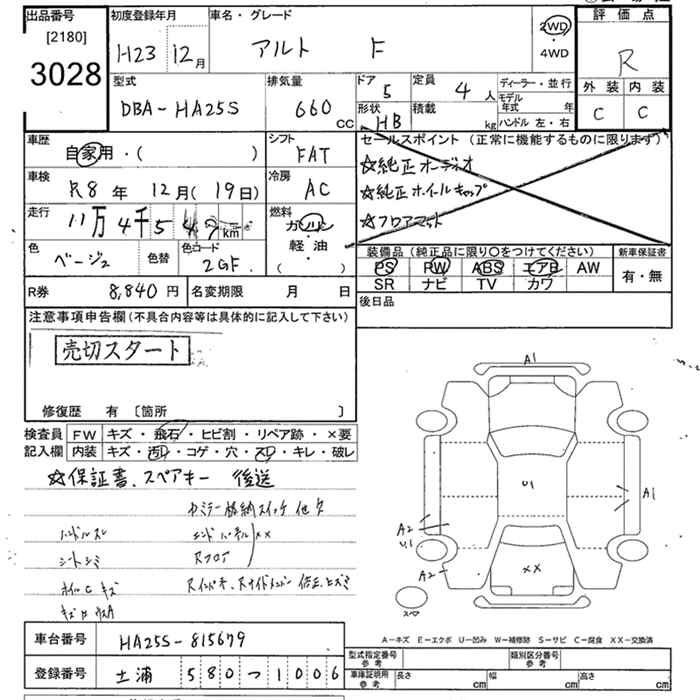 出品番号
[2180]
3028
初度登録年月
H23 12月
車名・グレード
アルト F
2WD
・
4WD
評価点
R
外装 内装
C C
型式
DBA-HA25S
排気量
660 CC
ドア
5
定員
4人
形状
HB
積載
kg
ディーラー・並行
モデル年式 年
ハンドル 左・右
車歴
自家用・( )
シフト
FAT
車検
R8年 12月(19日)
冷房
AC
走行
11万4千5 km
燃料
ガソリン
軽・油
・
( )
色
ベージュ
色替
色コード
2GF
セールスポイント(正常に機能するものに限ります)
☆純正オーディオ
☆純正ホイールキャップ
☆フロアマット
装備品(純正品に限り○をつけてください)
PS PW ABS エアB AW
SR ナビ TV カワ
新車保証書
有・無
R券 8,840円
名変期限 月 日
後日品
注意事項申告欄(不具合内容等は具体的に記入して下さい)
売切スタート
修復歴 有 〔箇所 〕
検査員記入欄
FW キズ・飛石・ヒビ割・リペア跡・×要
内装 キズ・汚れ・コゲ・穴・スレ・キレ・破レ
☆保証書、スペアキー 後送
ハンドルスレ
シートシミ
A1
U1
A1
A2
U1
A2
××
スペア
A-キズ E-エクボ U-凹み W-補修跡 S-サビ C-腐食 XX-交換済
車台番号 HA25S-815679
登録番号 土浦 580 つ 1006
型式指定番号
参考
類別区分番号
参考
車庫証明用
参考
長さ cm
幅 cm
高さ cm